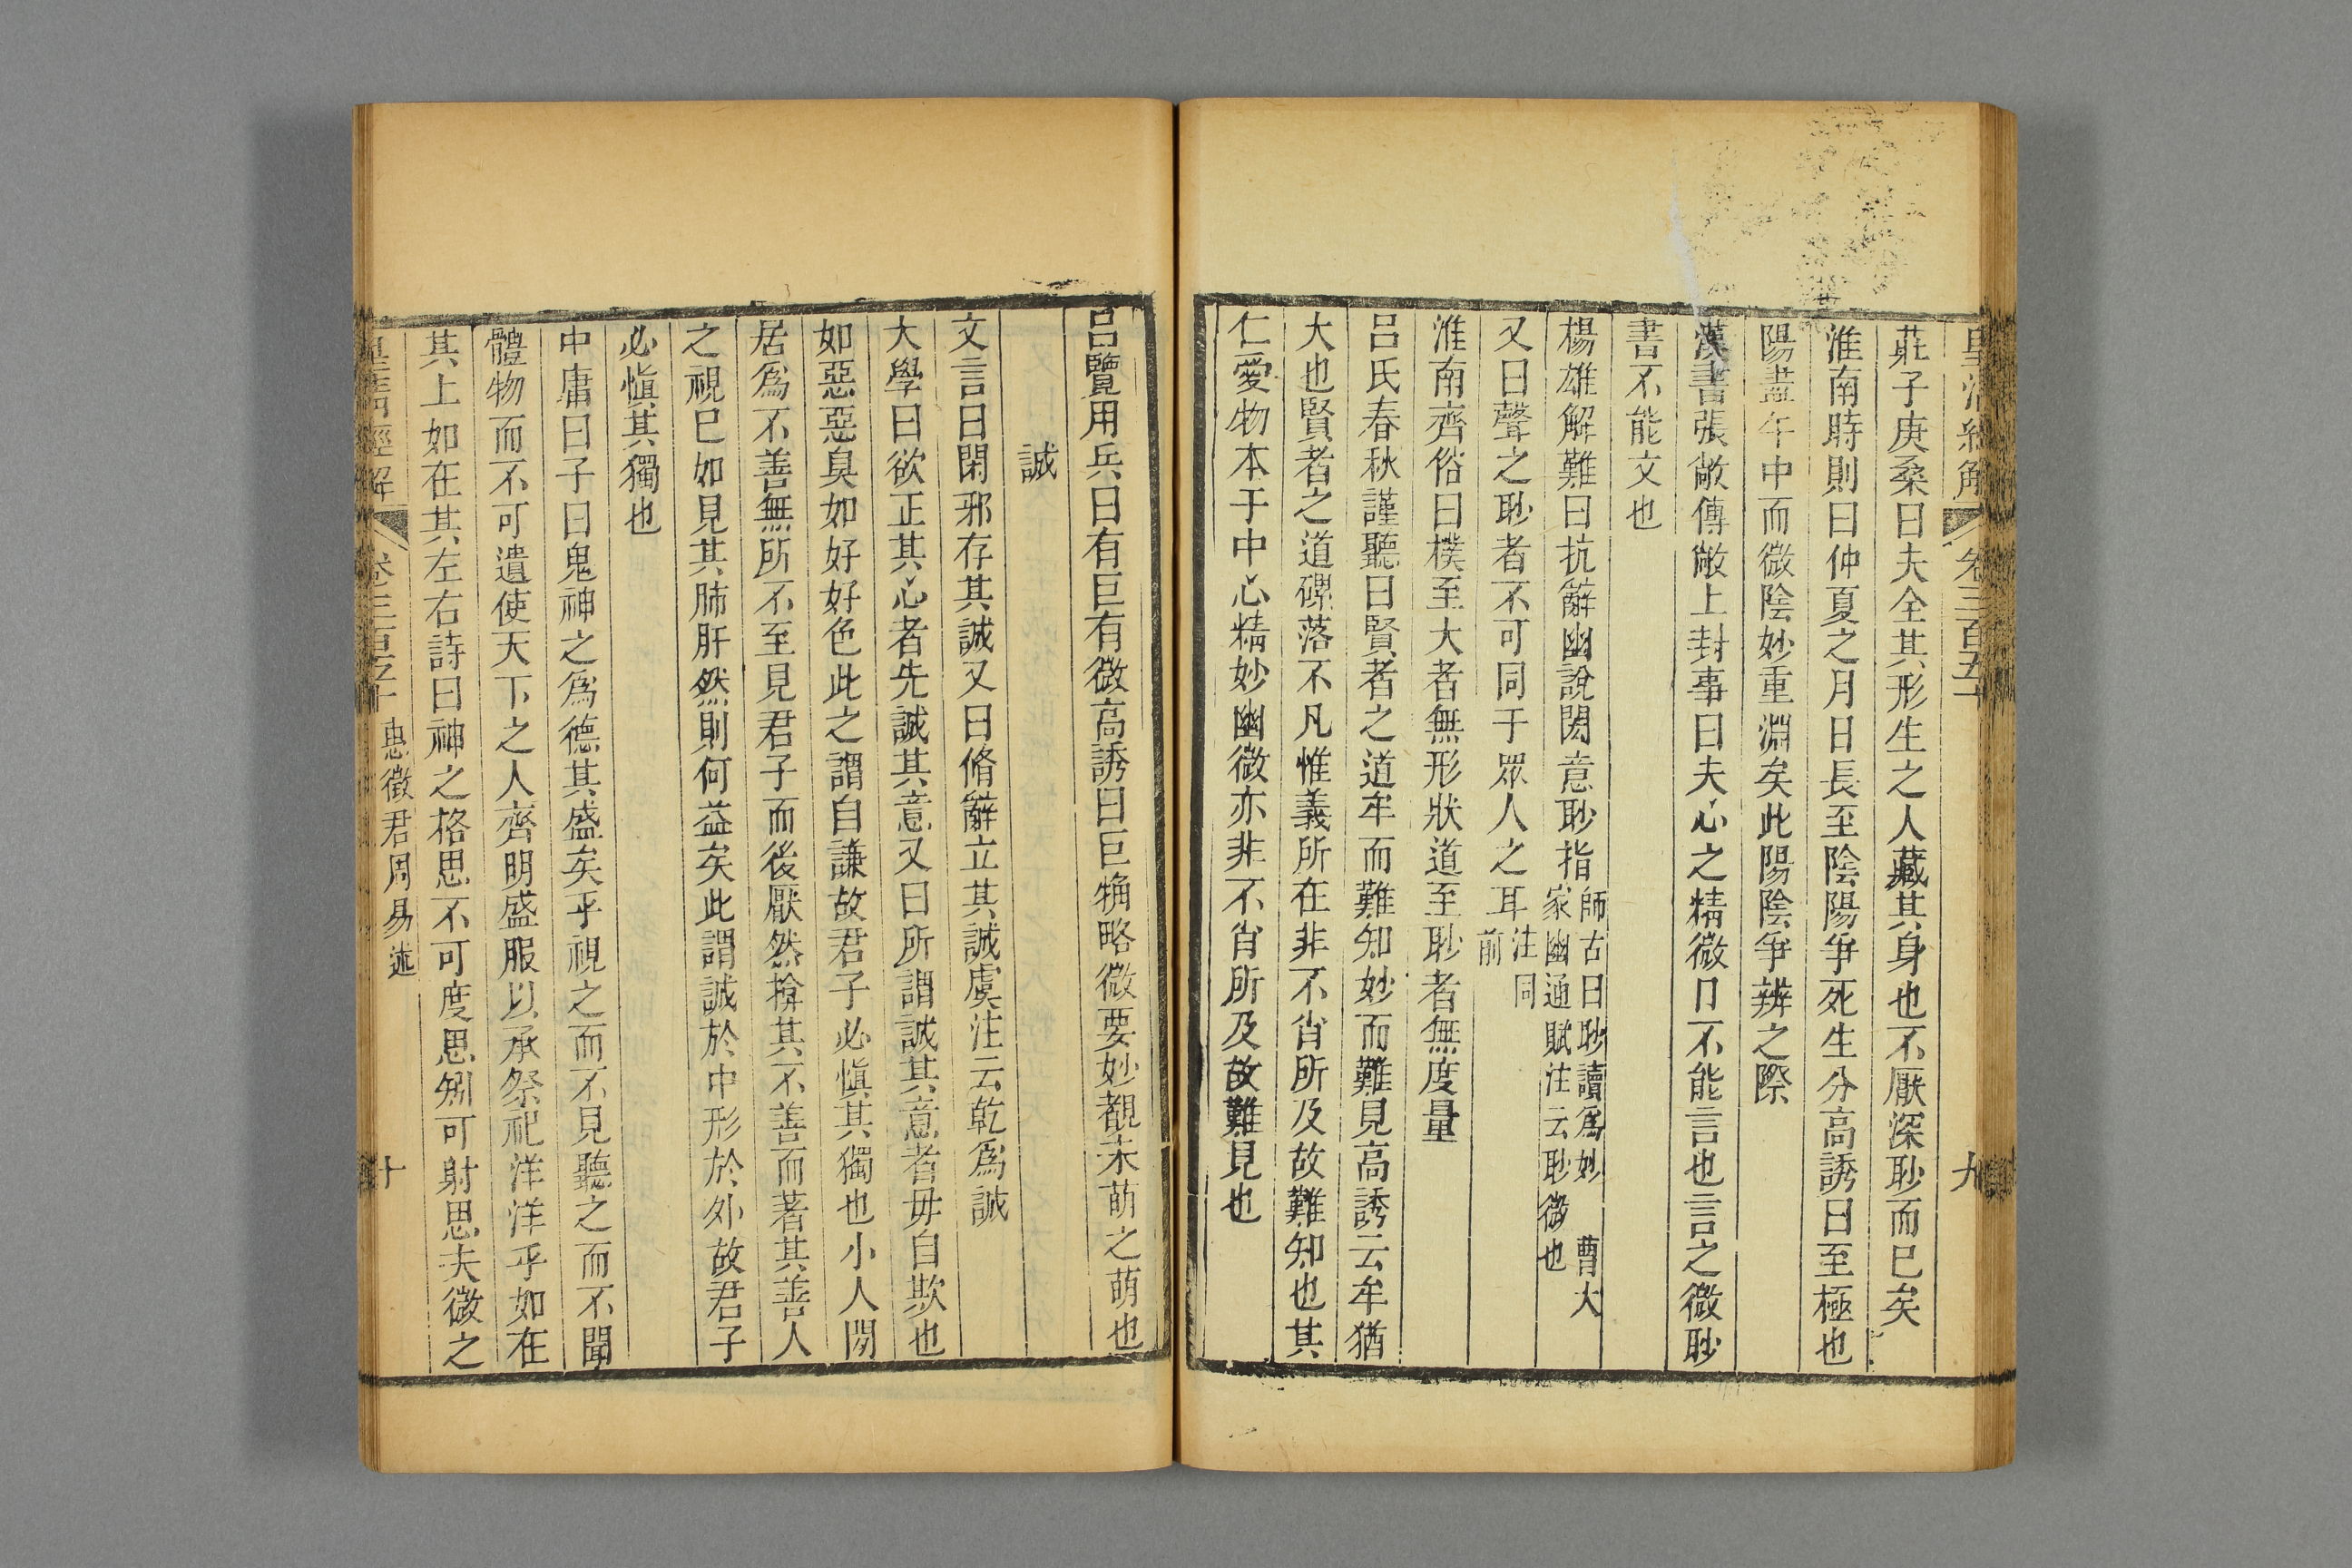 皇清經解 卷三百五十 九
莊子庚桑曰夫全其形生之人藏其身也不厭深眇而已矣
淮南時則曰仲夏之月日長至陰陽爭死生分高誘曰至極也
陽盡午中而微陰妙重淵矣此陽陰爭辨之際
漢書張敞傳敞上封事曰夫心之精微口不能言也言之微眇
書不能文也
楊雄解難曰抗辭幽說閎意眇指師古曰眇讀爲妙 曹大
家幽通賦注云眇微也
又曰聲之眇者不可同于眾人之耳注同
前
淮南齊俗曰樸至大者無形狀道至眇者無度量
呂氏春秋謹聽曰賢者之道牟而難知妙而難見高誘云牟猶
大也賢者之道磥落不凡惟義所在非不肖所及故難知也其
仁愛物本于中心精妙幽微亦非不肖所及故難見也
呂覽用兵曰有巨有微高誘曰巨觕略微要妙覩未萌之萌也
誠
文言曰閑邪存其誠又曰脩辭立其誠虞注云乾爲誠
大學曰欲正其心者先誠其意又曰所謂誠其意者毋自欺也
如惡惡臭如好好色此之謂自謙故君子必愼其獨也小人閒
居爲不善無所不至見君子而後厭然揜其不善而著其善人
之視已如見其肺肝然則何益矣此謂誠於中形於外故君子
必愼其獨也
中庸曰子曰鬼神之爲德其盛矣乎視之而不見聽之而不聞
體物而不可遺使天下之人齊明盛服以承祭祀洋洋乎如在
其上如在其左右詩曰神之格思不可度思矧可射思夫微之
皇清經解 卷三百五十 惠徵君周易述 十